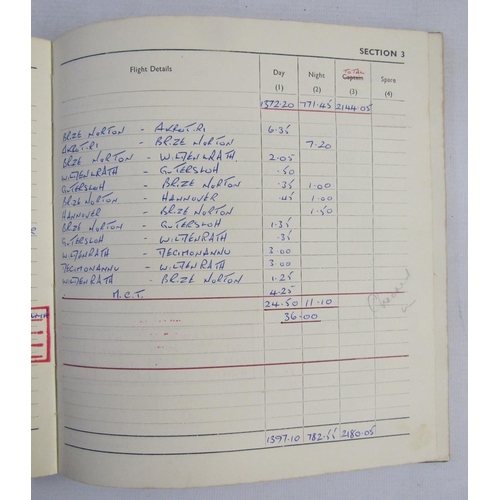 SECTION 3
Flight Details Day Night TOTAL Captain Spare
(1) (2) (3) (4)
1372.20 771.45 2144.05
BRIZE NORTON - AKROTIRI 6.35
AKROTIRI - BRIZE NORTON 7.20
BRIZE NORTON - WILDENRATH 2.05
WILDENRATH - GUTERSLOH .50
GUTERSLOH - BRIZE NORTON .35 1.00
BRIZE NORTON - HANNOVER .45 1.00
HANNOVER - BRIZE NORTON 1.50
BRIZE NORTON - GUTERSLOH 1.35
GUTERSLOH - WILDENRATH .35
WILDENRATH - DECIMOMANNU 3.00
DECIMOMANNU - WILDENRATH 3.00
WILDENRATH - BRIZE NORTON 1.25
M.C.T. 4.25
24.50 11.10
36.00
1397.10 782.55 2180.05